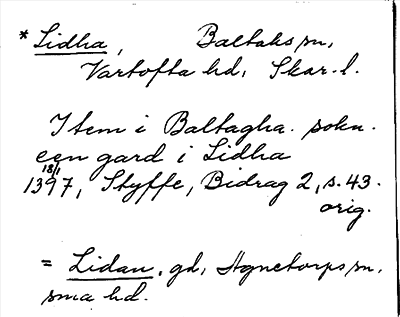 *Lidha, Baltaks sn,
Vartofta hd, Skar. l.
Item i Baltagha. sokn.
een gard i Lidha
18/1
1397, Styffe, Bidrag 2, s. 43.
orig.
= Lidan, gd, Agnetorps sn,
sma hd.